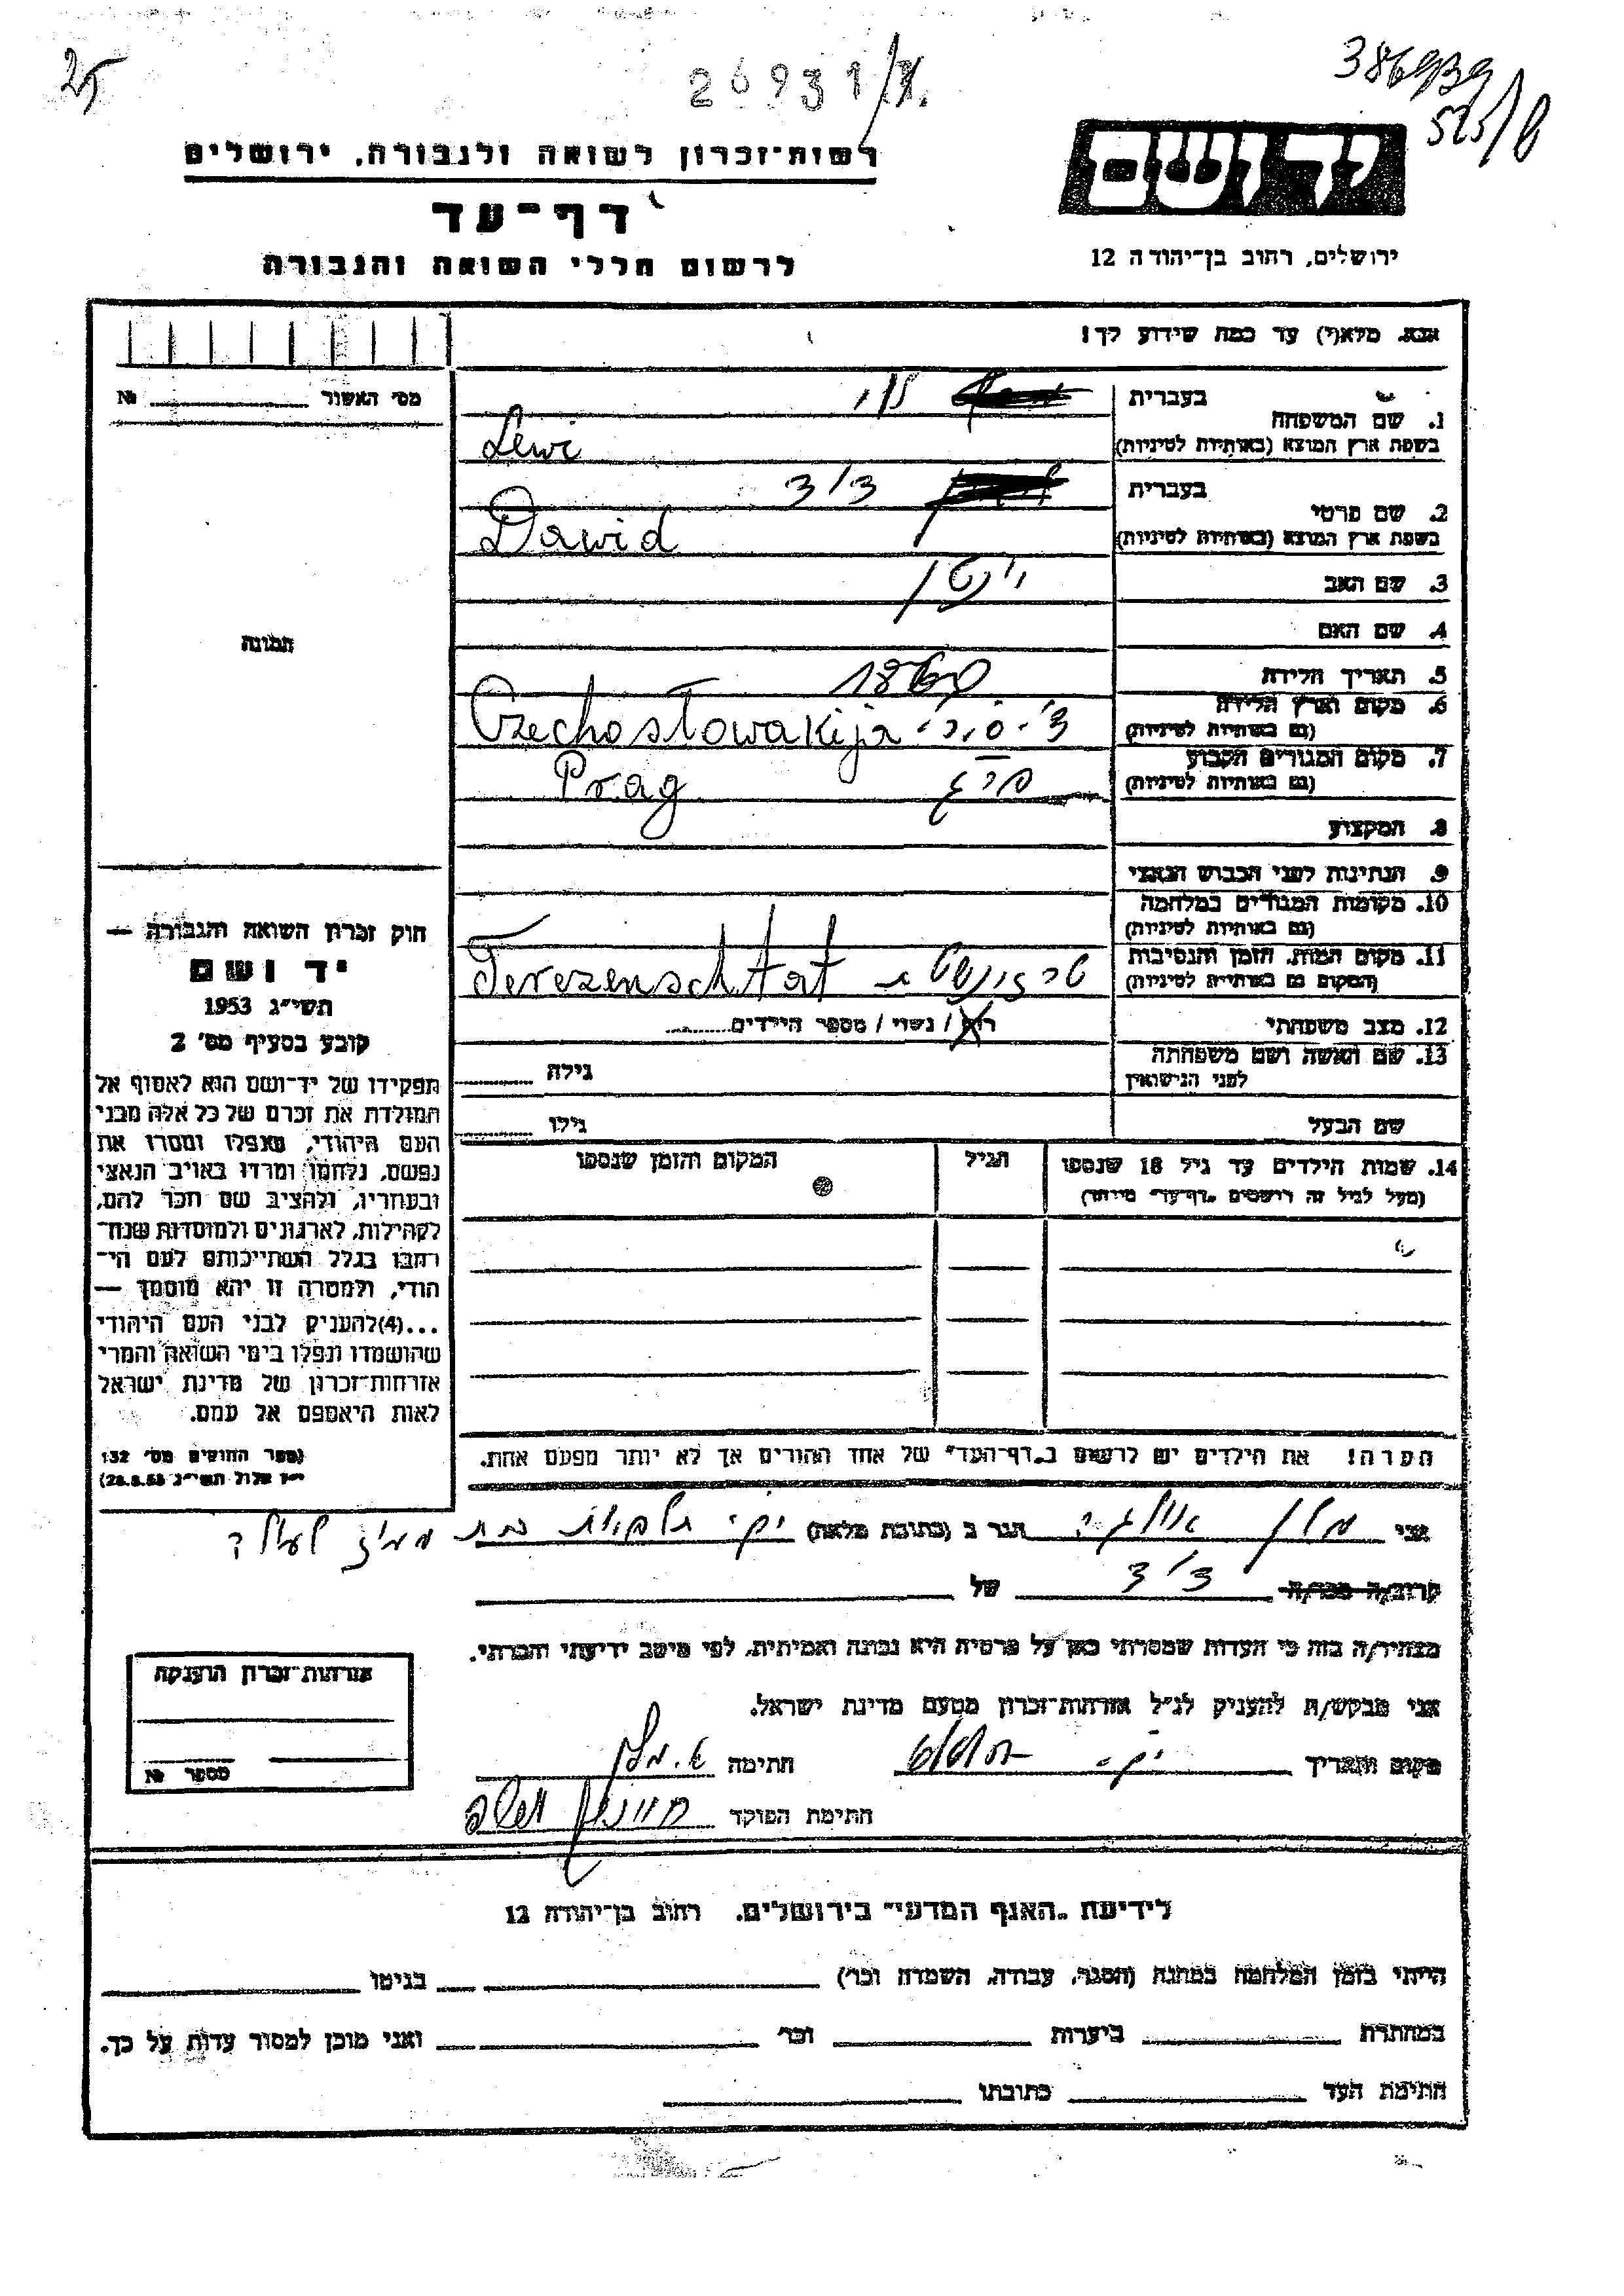 25
26931/א.
386939
525/8
רשות־זכרון לשואה ולגבורה, ירושלים
ידושם
דף־עד
לרשום חללי השואה והגבורה
ירושלים, רחוב בן־יהודה 12
אנא, מלא(י) עד כמה שידוע לך!
מס׳ האשור № 
1. שם המשפחה
בעברית לוי
בשפת ארץ המוצא (באותיות לטיניות) Lewi
2. שם פרטי
בעברית דוד
בשפת ארץ המוצא (באותיות לטיניות) Dawid
3. שם האב
4. שם האם
תמונה
5. תאריך הלידה 1860
6. מקום וארץ הלידה
(גם באותיות לטיניות) Czechosłowakija
7. מקום המגורים הקבוע
(גם באותיות לטיניות) פרג Prag
8. המקצוע
9. הנתינות לפני הכבוש הנאצי
10. מקומות המגורים במלחמה
(גם באותיות לטיניות)
11. מקום המות, הזמן והנסיבות
(המקום גם באותיות לטיניות) Terezenschtat
12. מצב משפחתי רוק / נשוי / מספר הילדים
13. שם האשה ושם משפחתה
לפני הנישואין גילה
שם הבעל גילו
14. שמות הילדים עד גיל 18 שנספו
(מעל לגיל זה רושמים „דף־עד" מיוחד)
הגיל
המקום והזמן שנספו
חוק זכרון השואה והגבורה —
יד ושם
תשי״ג 1953
קובע בסעיף מס׳ 2
תפקידו של יד־ושם הוא לאסוף אל
המולדת את זכרם של כל אלה מבני
העם היהודי, שנפלו ומסרו את
נפשם, נלחמו ומרדו באויב הנאצי
ובעוזריו, ולהציב שם וזכר להם,
לקהילות, לארגונים ולמוסדות שנח־
רבו בגלל השתייכותם לעם הי־
הודי, ולמטרה זו יהא מוסמך —
...(4)להעניק לבני העם היהודי
שהושמדו ונפלו בימי השואה והמרי
אזרחות־זכרון של מדינת ישראל
לאות היאספם אל עמם.
(ספר החוקים מס׳ 132
י״ז אלול תשי״ג 28.8.53)
הערה! את הילדים יש לרשום ב„דף־העד" של אחד ההורים אך לא יותר מפעם אחת.
אני הגר ב (כתובת מלאה)
קרוב/ה מכר/ה דוד של
מצהיר/ה בזה כי העדות שמסרתי כאן על פרטיה היא נכונה ואמיתית, לפי מיטב ידיעתי והכרתי.
אני מבקש/ת להעניק לנ״ל אזרחות־זכרון מטעם מדינת ישראל.
מקום ותאריך חתימה
חתימת הפוקד
אזרחות־זכרון הוענקה
מספר №
לידיעת „האגף המדעי" בירושלים, רחוב בן־יהודה 12
הייתי בזמן המלחמה במחנה (הסגר, עבודה, השמדה וכו׳) בגיטו
במחתרת ביערות וכו׳ ואני מוכן למסור עדות על כך.
חתימת העד כתובתו